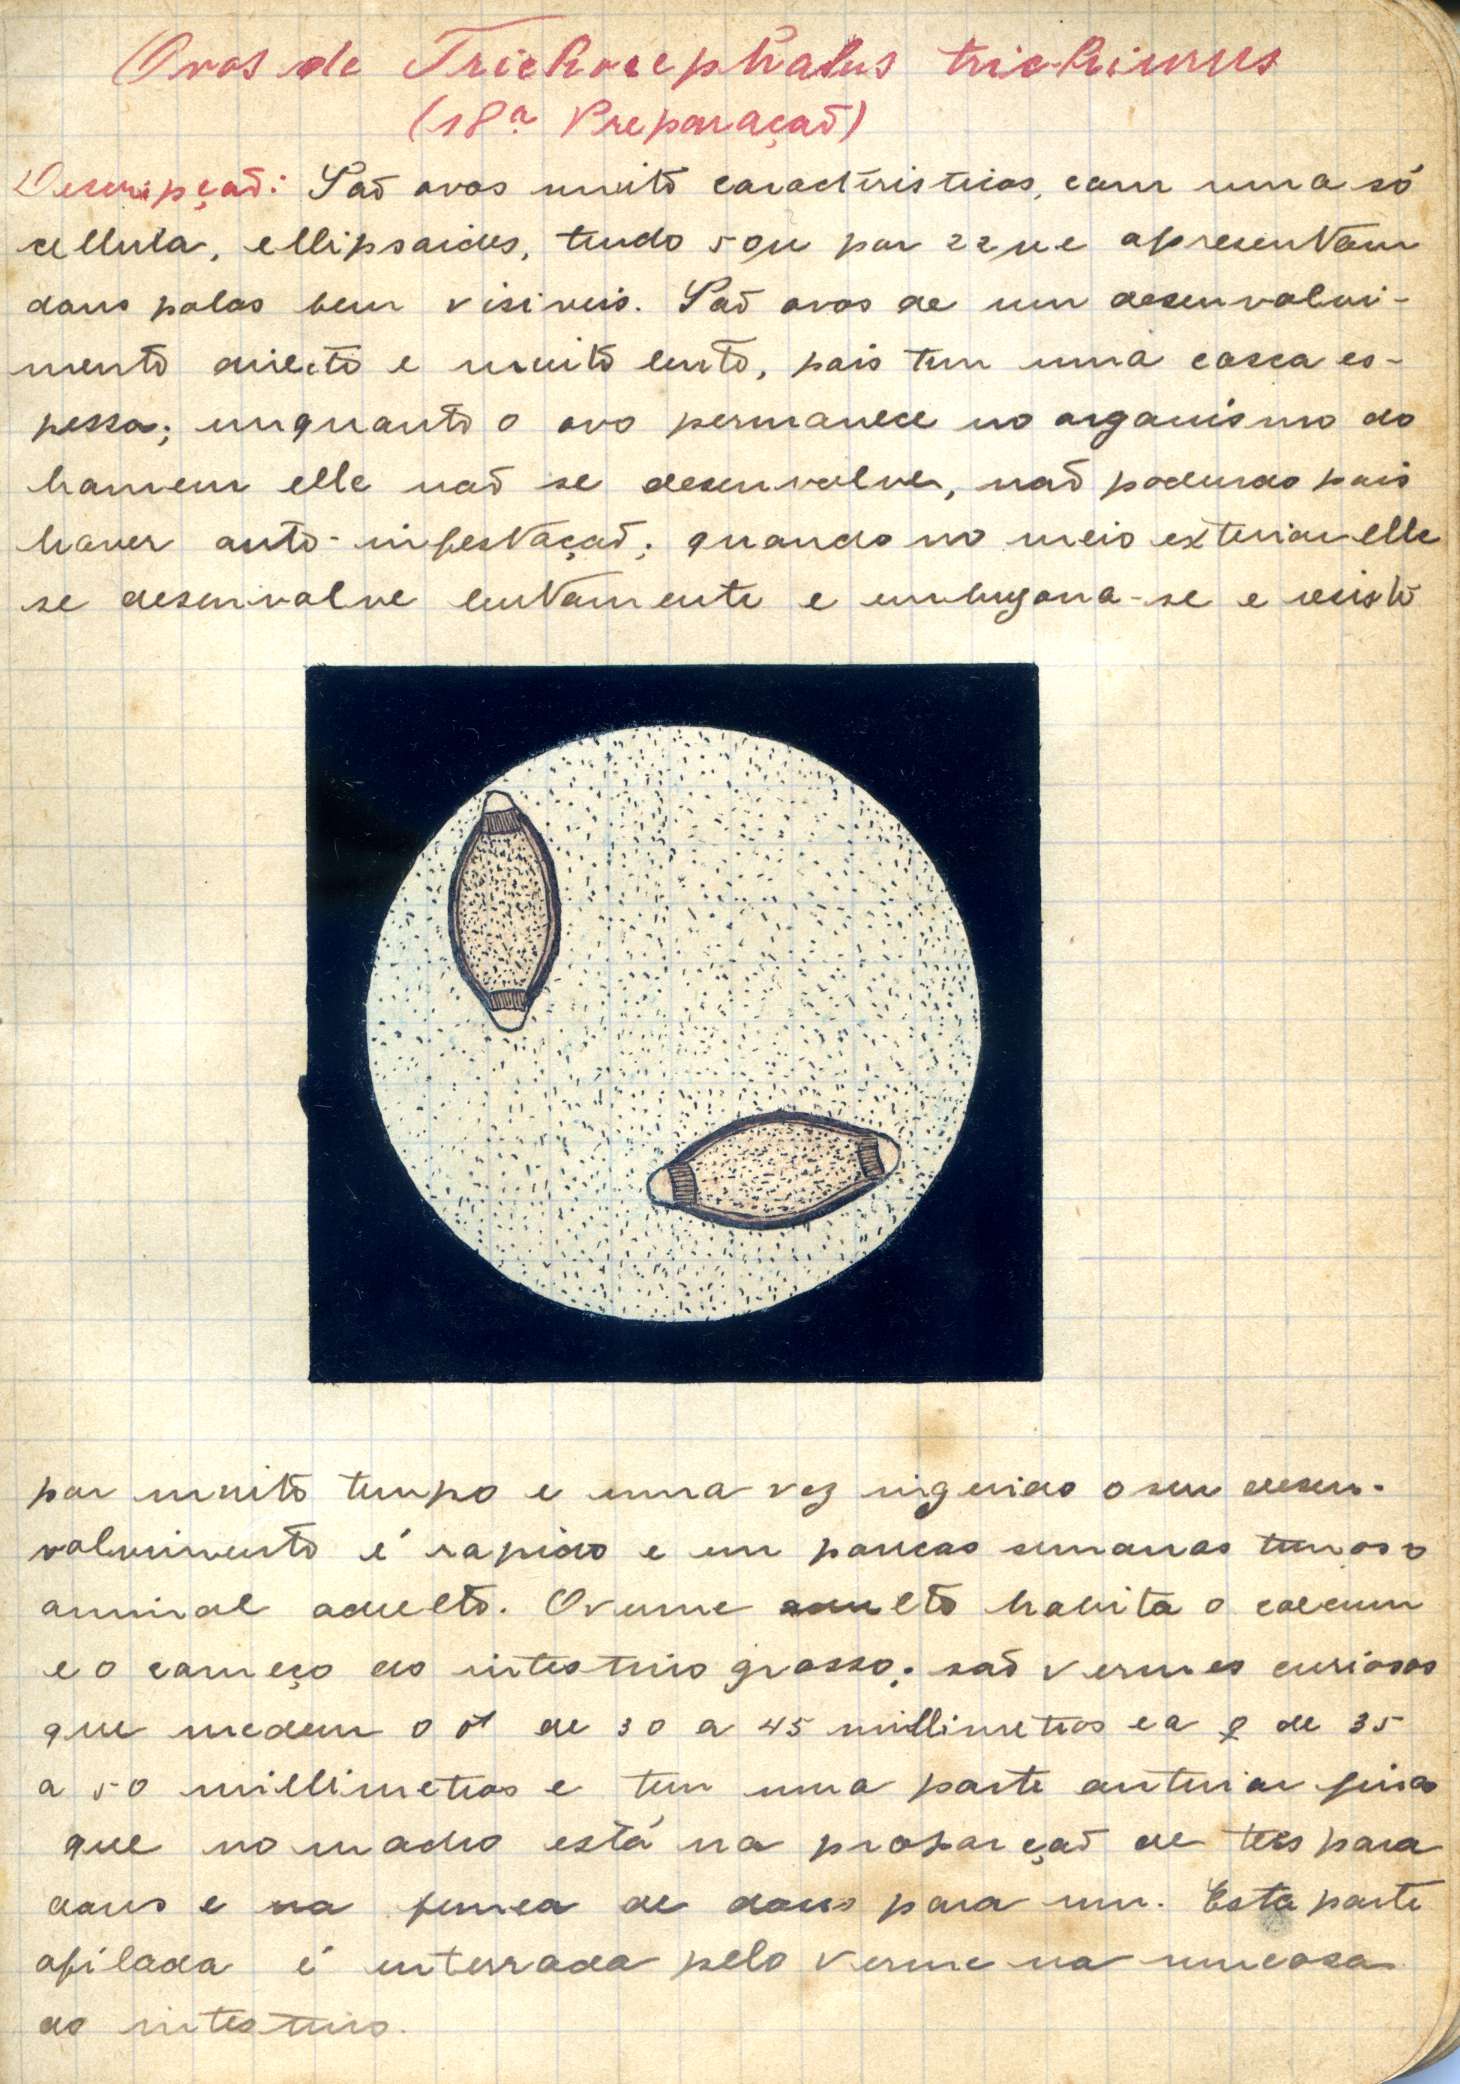 Ovos de Trichocephalus trichiurus
(18ª Preparação)
Descripção: São ovos muito caracteristicos, com uma só
cellula, ellipsoides, tendo 50µ por 22µ e apresentam
dous polos bem visiveis. São ovos de um desenvolvi-
mento directo e muito lento, pois tem uma casca es-
pessa; emquanto o ovo permanece no organismo do
homem elle não se desenvolve, não podendo pois
haver auto-infestação; quando no meio exterior elle
se desenvolve lentamente e embryona-se e resiste
por muito tempo e uma vez ingerido o seu desen-
volvimento é rapido e em poucas semanas temos o
animal adulto. O verme adulto habita o coecum
e o começo do intestino grosso; são vermes curiosos
que medem o ♂ de 30 a 45 millimetros e a ♀ de 35
a 50 millimetros e tem uma parte anterior fina
que no macho está na proporção de tres para
dous e na femea de dous para um. Esta parte
afilada é enterrada pelo verme na mucosa
do intestino.